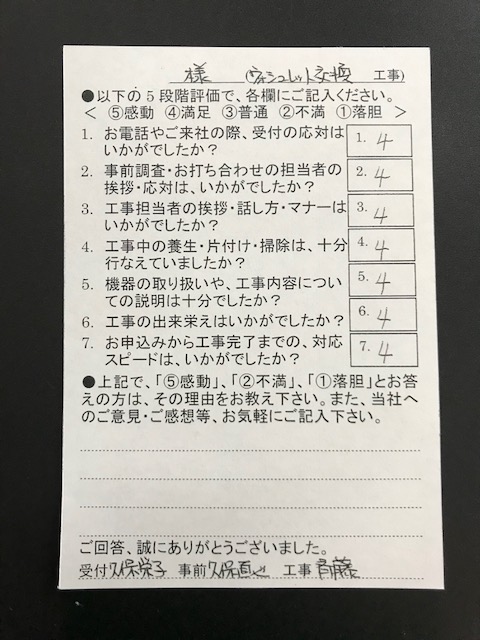 様 (ウォシュレット交換 工事)
●以下の5段階評価で、各欄にご記入ください。
< ⑤感動 ④満足 ③普通 ②不満 ①落胆 >
1. お電話やご来社の際、受付の応対は
いかがでしたか?
1. 4
2. 事前調査・お打ち合わせの担当者の
挨拶・応対は、いかがでしたか?
2. 4
3. 工事担当者の挨拶・話し方・マナーは
いかがでしたか?
3. 4
4. 工事中の養生・片付け・掃除は、十分
行なえていましたか?
4. 4
5. 機器の取り扱いや、工事内容につい
ての説明は十分でしたか?
5. 4
6. 工事の出来栄えはいかがでしたか?
6. 4
7. お申込みから工事完了までの、対応
スピードは、いかがでしたか?
7. 4
●上記で、「⑤感動」、「②不満」、「①落胆」とお答
えの方は、その理由をお教え下さい。また、当社へ
のご意見・ご感想等、お気軽にご記入下さい。
ご回答、誠にありがとうございました。
受付 久保栄子 事前 久保直也 工事 斉藤